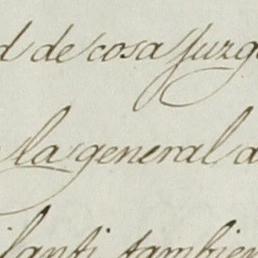 d de cosa Juzg
la general d
ilanti tambien